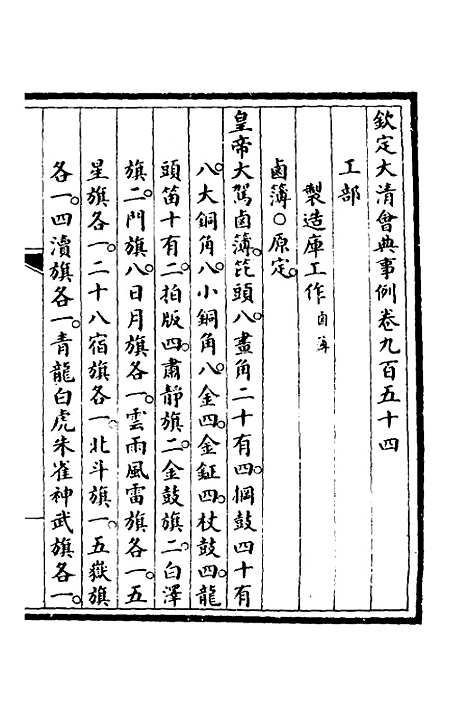 欽定大清會典事例卷九百五十四
工部
製造庫工作鹵簿
鹵簿○原定。
皇帝大駕鹵簿。箆頭八。畫角二十有四。㭎鼓四十有
八。大銅角八。小銅角八。金四。金鉦四。杖鼓四。龍
頭笛十有二。拍版四。肅靜旗二。金鼓旗二。白澤
旗二。門旗八。日月旗各一。雲雨風雷旗各一。五
星旗各一。二十八宿旗各一。北斗旗一。五嶽旗
各一。四瀆旗各一。青龍白虎朱雀神武旗各一。